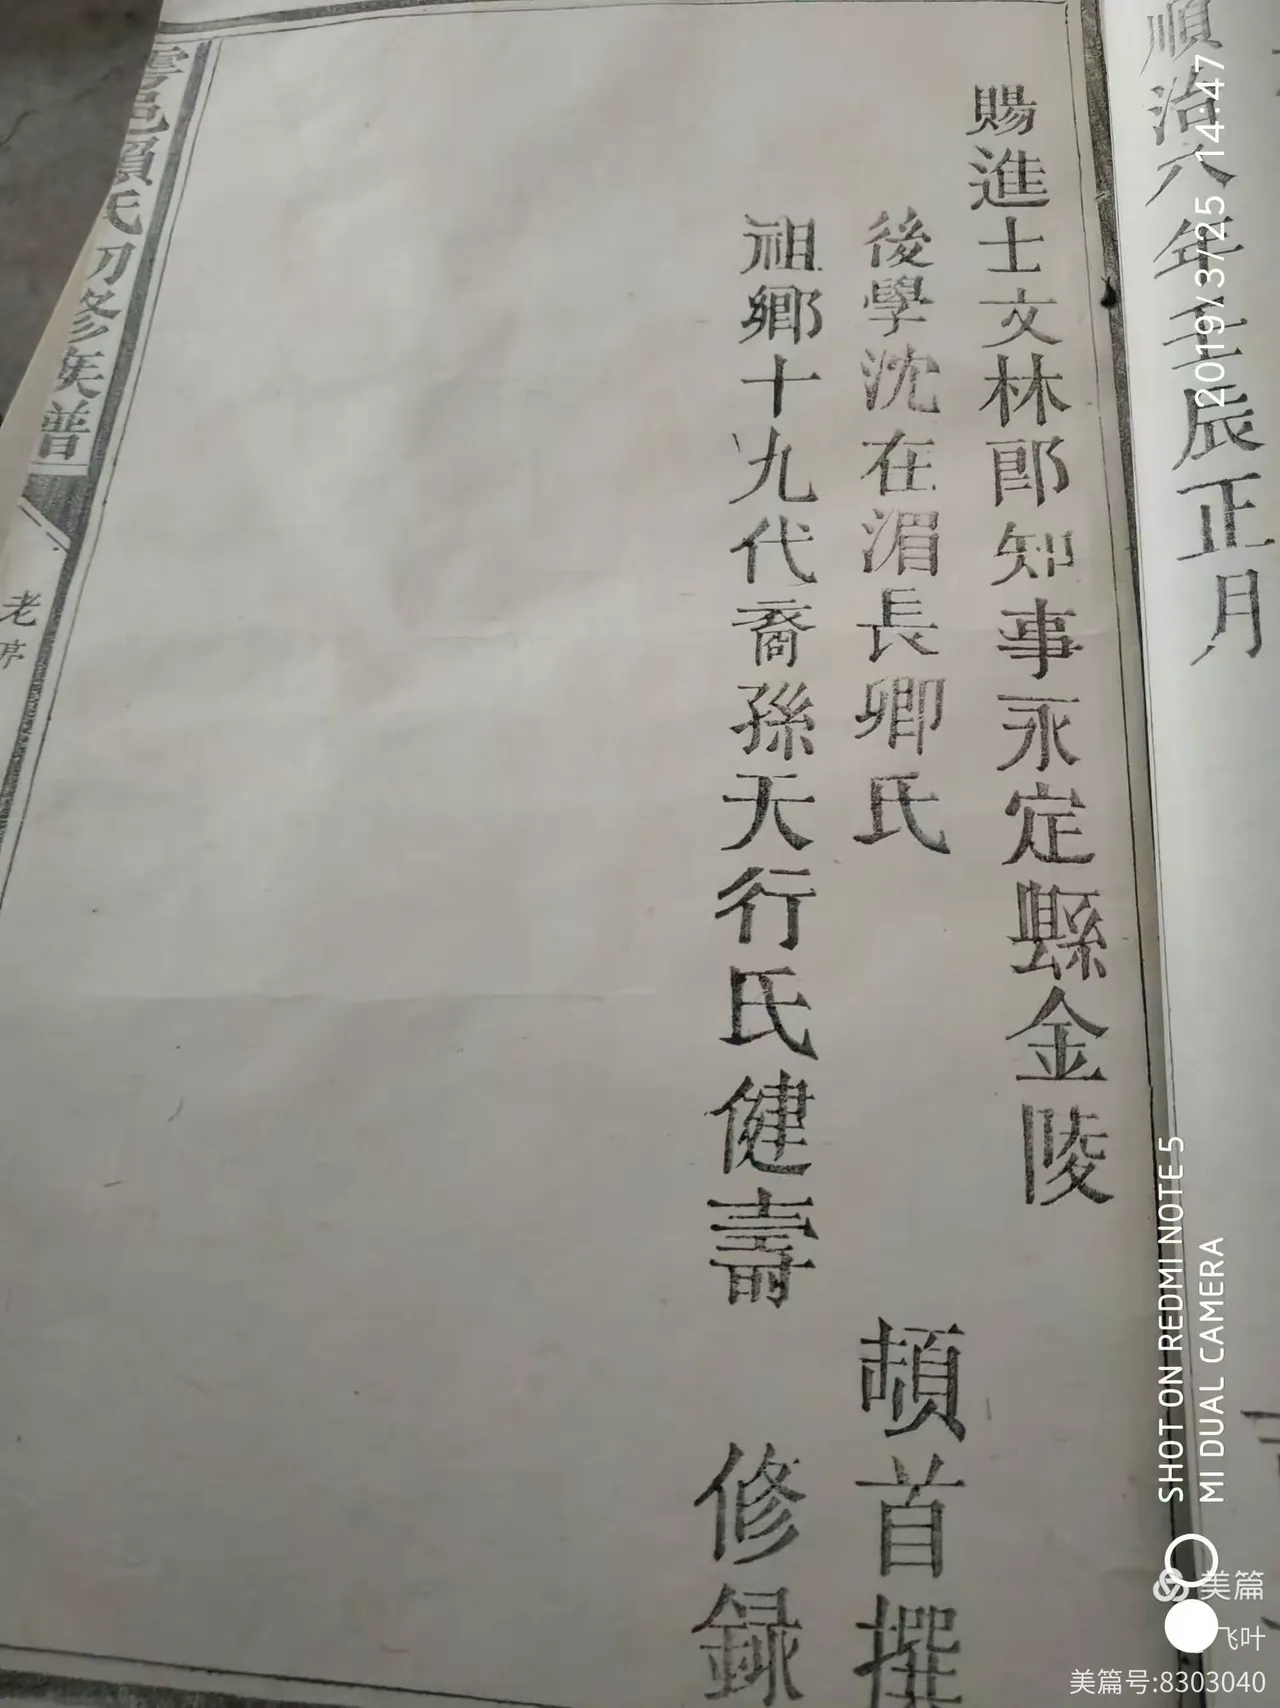 順治六年壬辰正月
賜進士文林郎知事永定縣金陵
後學沈在湄長卿氏 頓首撰
祖鄉十九代裔孫天行氏健壽 修錄
雩邑賴氏初修族譜
老序
2019/3/25 14:47
SHOT ON REDMI NOTE 5
MI DUAL CAMERA
美篇
飞叶
美篇号:8303040